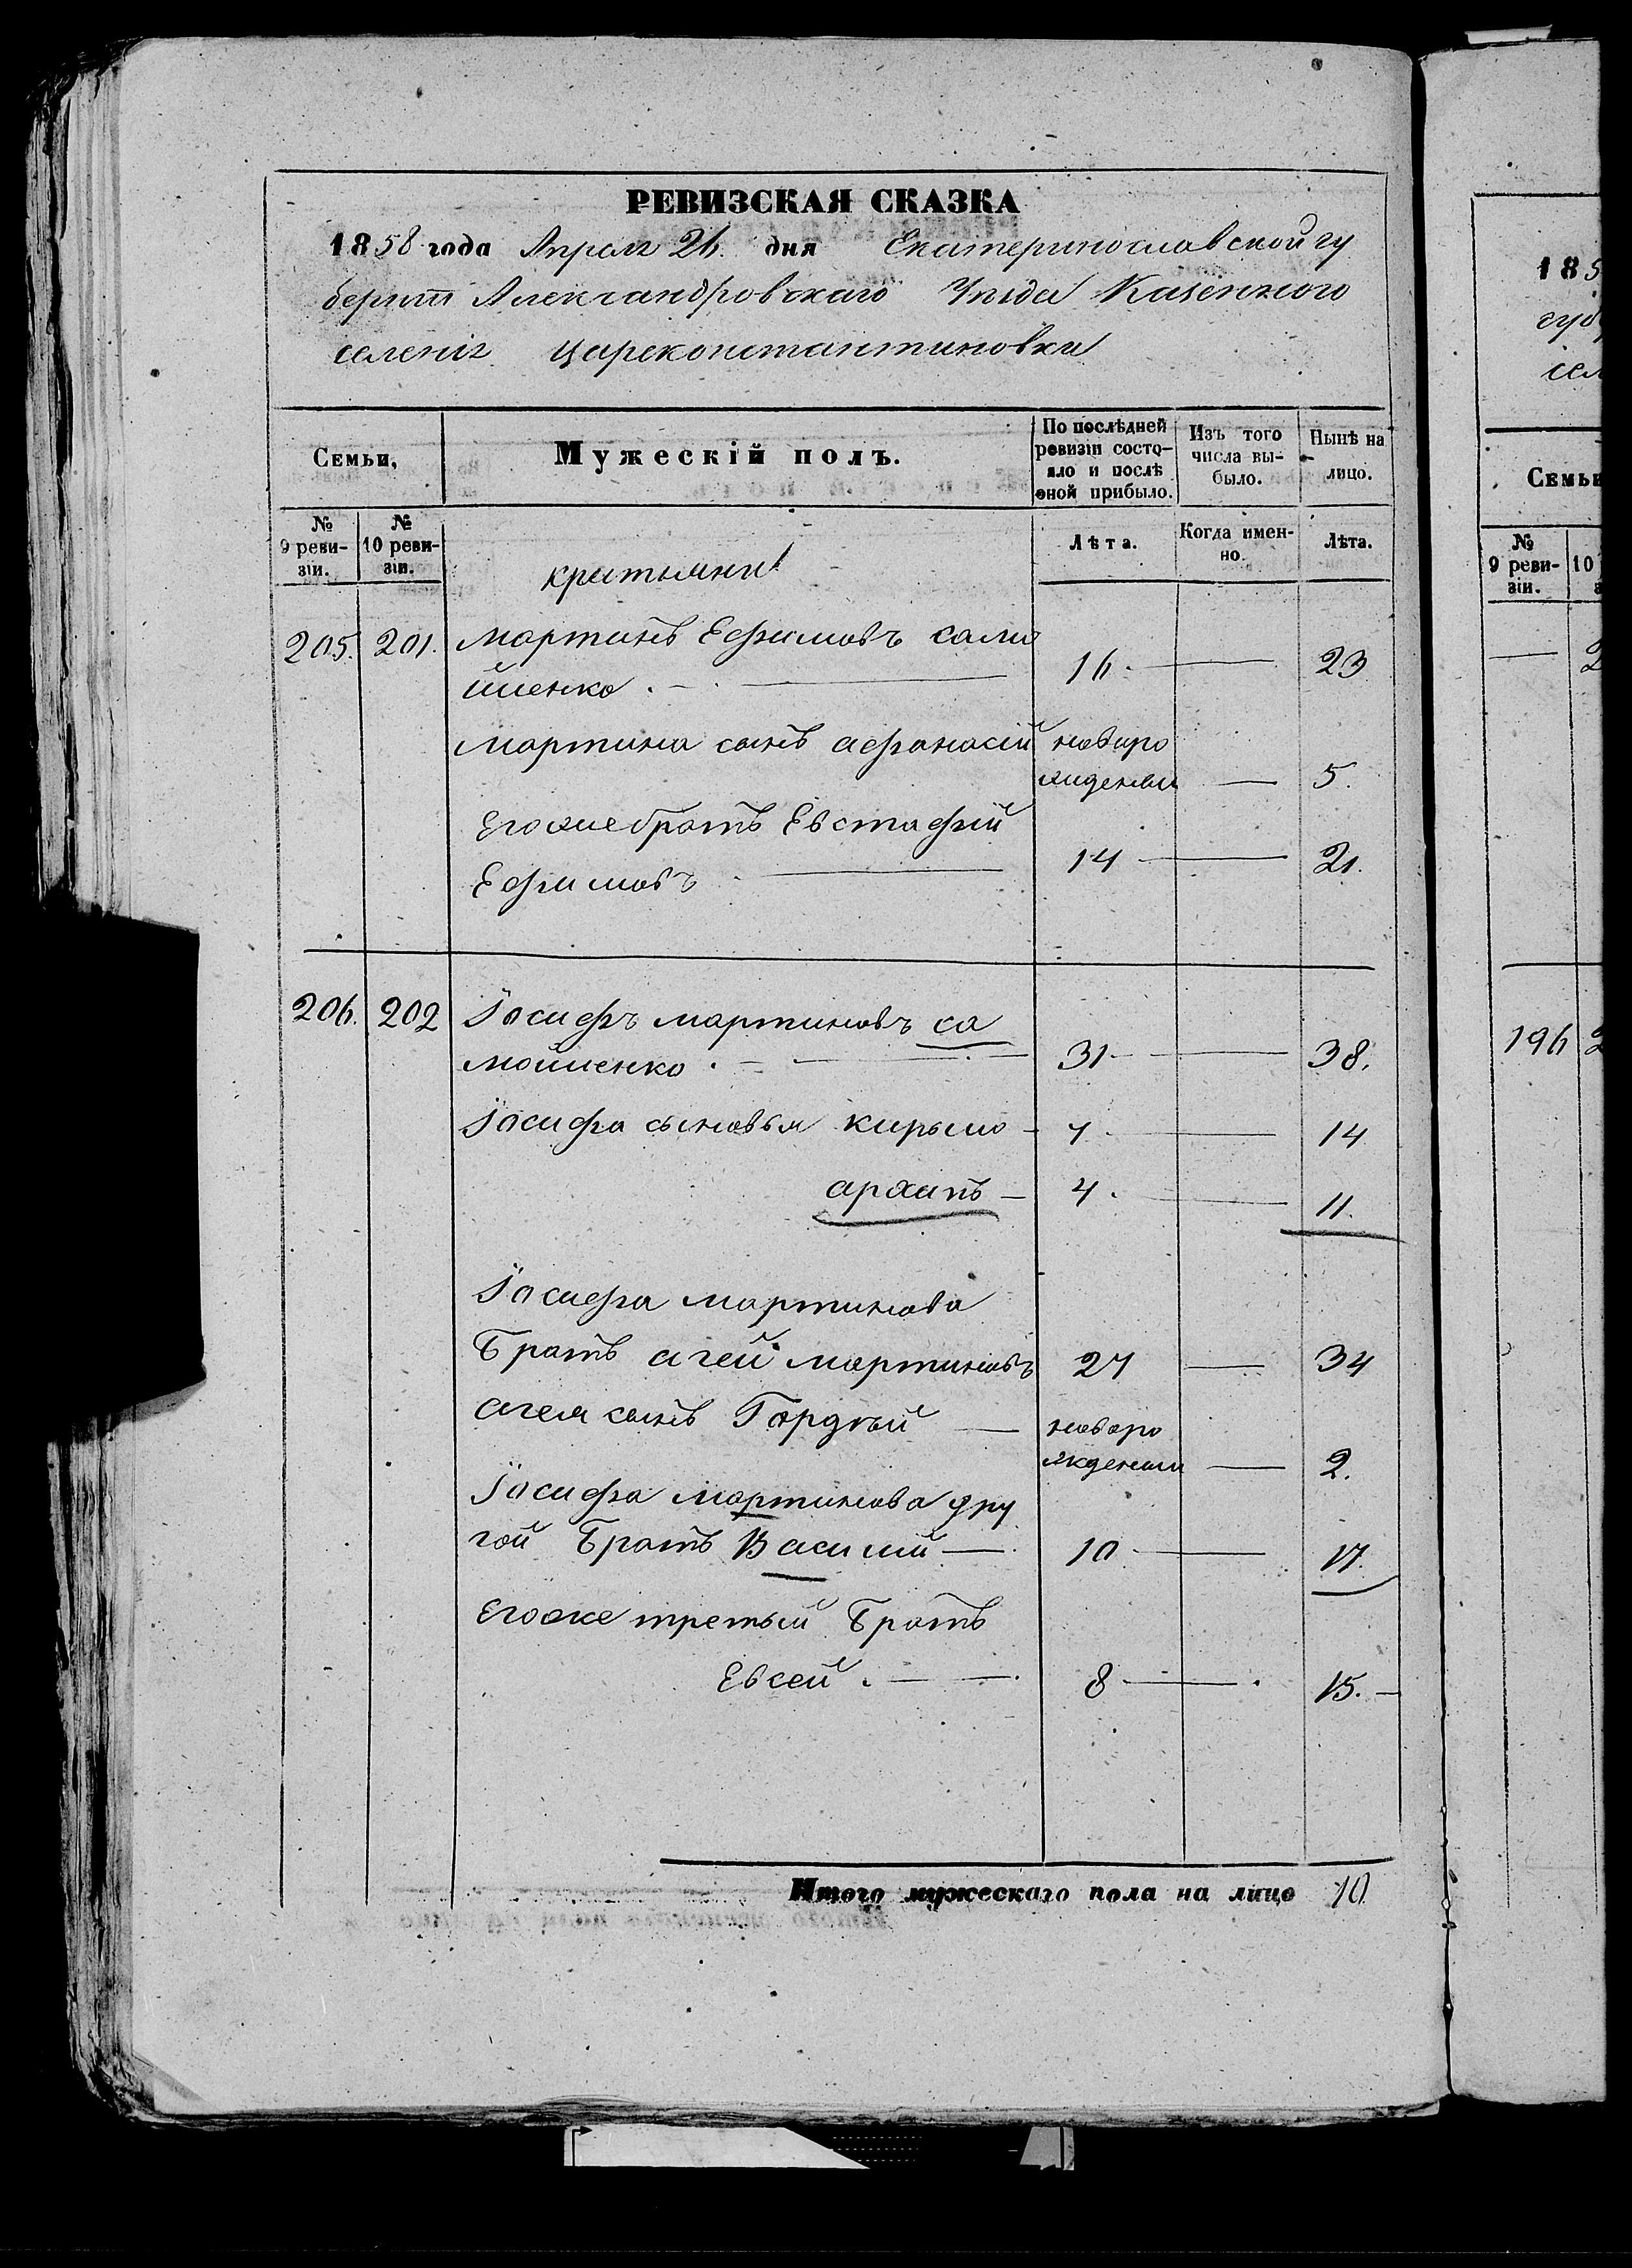 РЕВИЗСКАЯ СКАЗКА
1858 года Апреля 26. дня Екатеринославской гу
берніи Александровскаго Уезда Казенного
селенія Цареконстантиновки
Семьи,
Мужескій полъ.
По послѣдней ревизіи состояло и послѣ оной прибыло.
Изъ того числа выбыло.
Нынѣ на лицо.
№ 9 ревизіи.
№ 10 ревизіи.
Лѣта.
Когда именно.
Лѣта.
крестьяни
205. 201. Мартинъ Ефимовъ само
йленко . — 16. — 23
Мартина сынъ афанасій новоро
жденный — 5.
Егожебратъ Евстафій
Ефимовъ — 14 — 21.
206. 202 Іосифъ мартиновъ са
мойленко . — 31 — 38.
Іосифа сыновья кирыло — 7 — 14
архипъ — 4. — 11.
Іосифа мартинова
Братъ агей мартиновъ 27 — 34
агея сынъ Гордѣй — новоро
жденный — 2.
Іосифа мартинова дру
гой Братъ Василій — 10 — 17.
Егоже третьий Братъ
Евсей . — 8 — 15. —
Итого мужескаго пола на лицо 10
185
губ
сел
Семьи
№ 9 ревизіи.
10
196